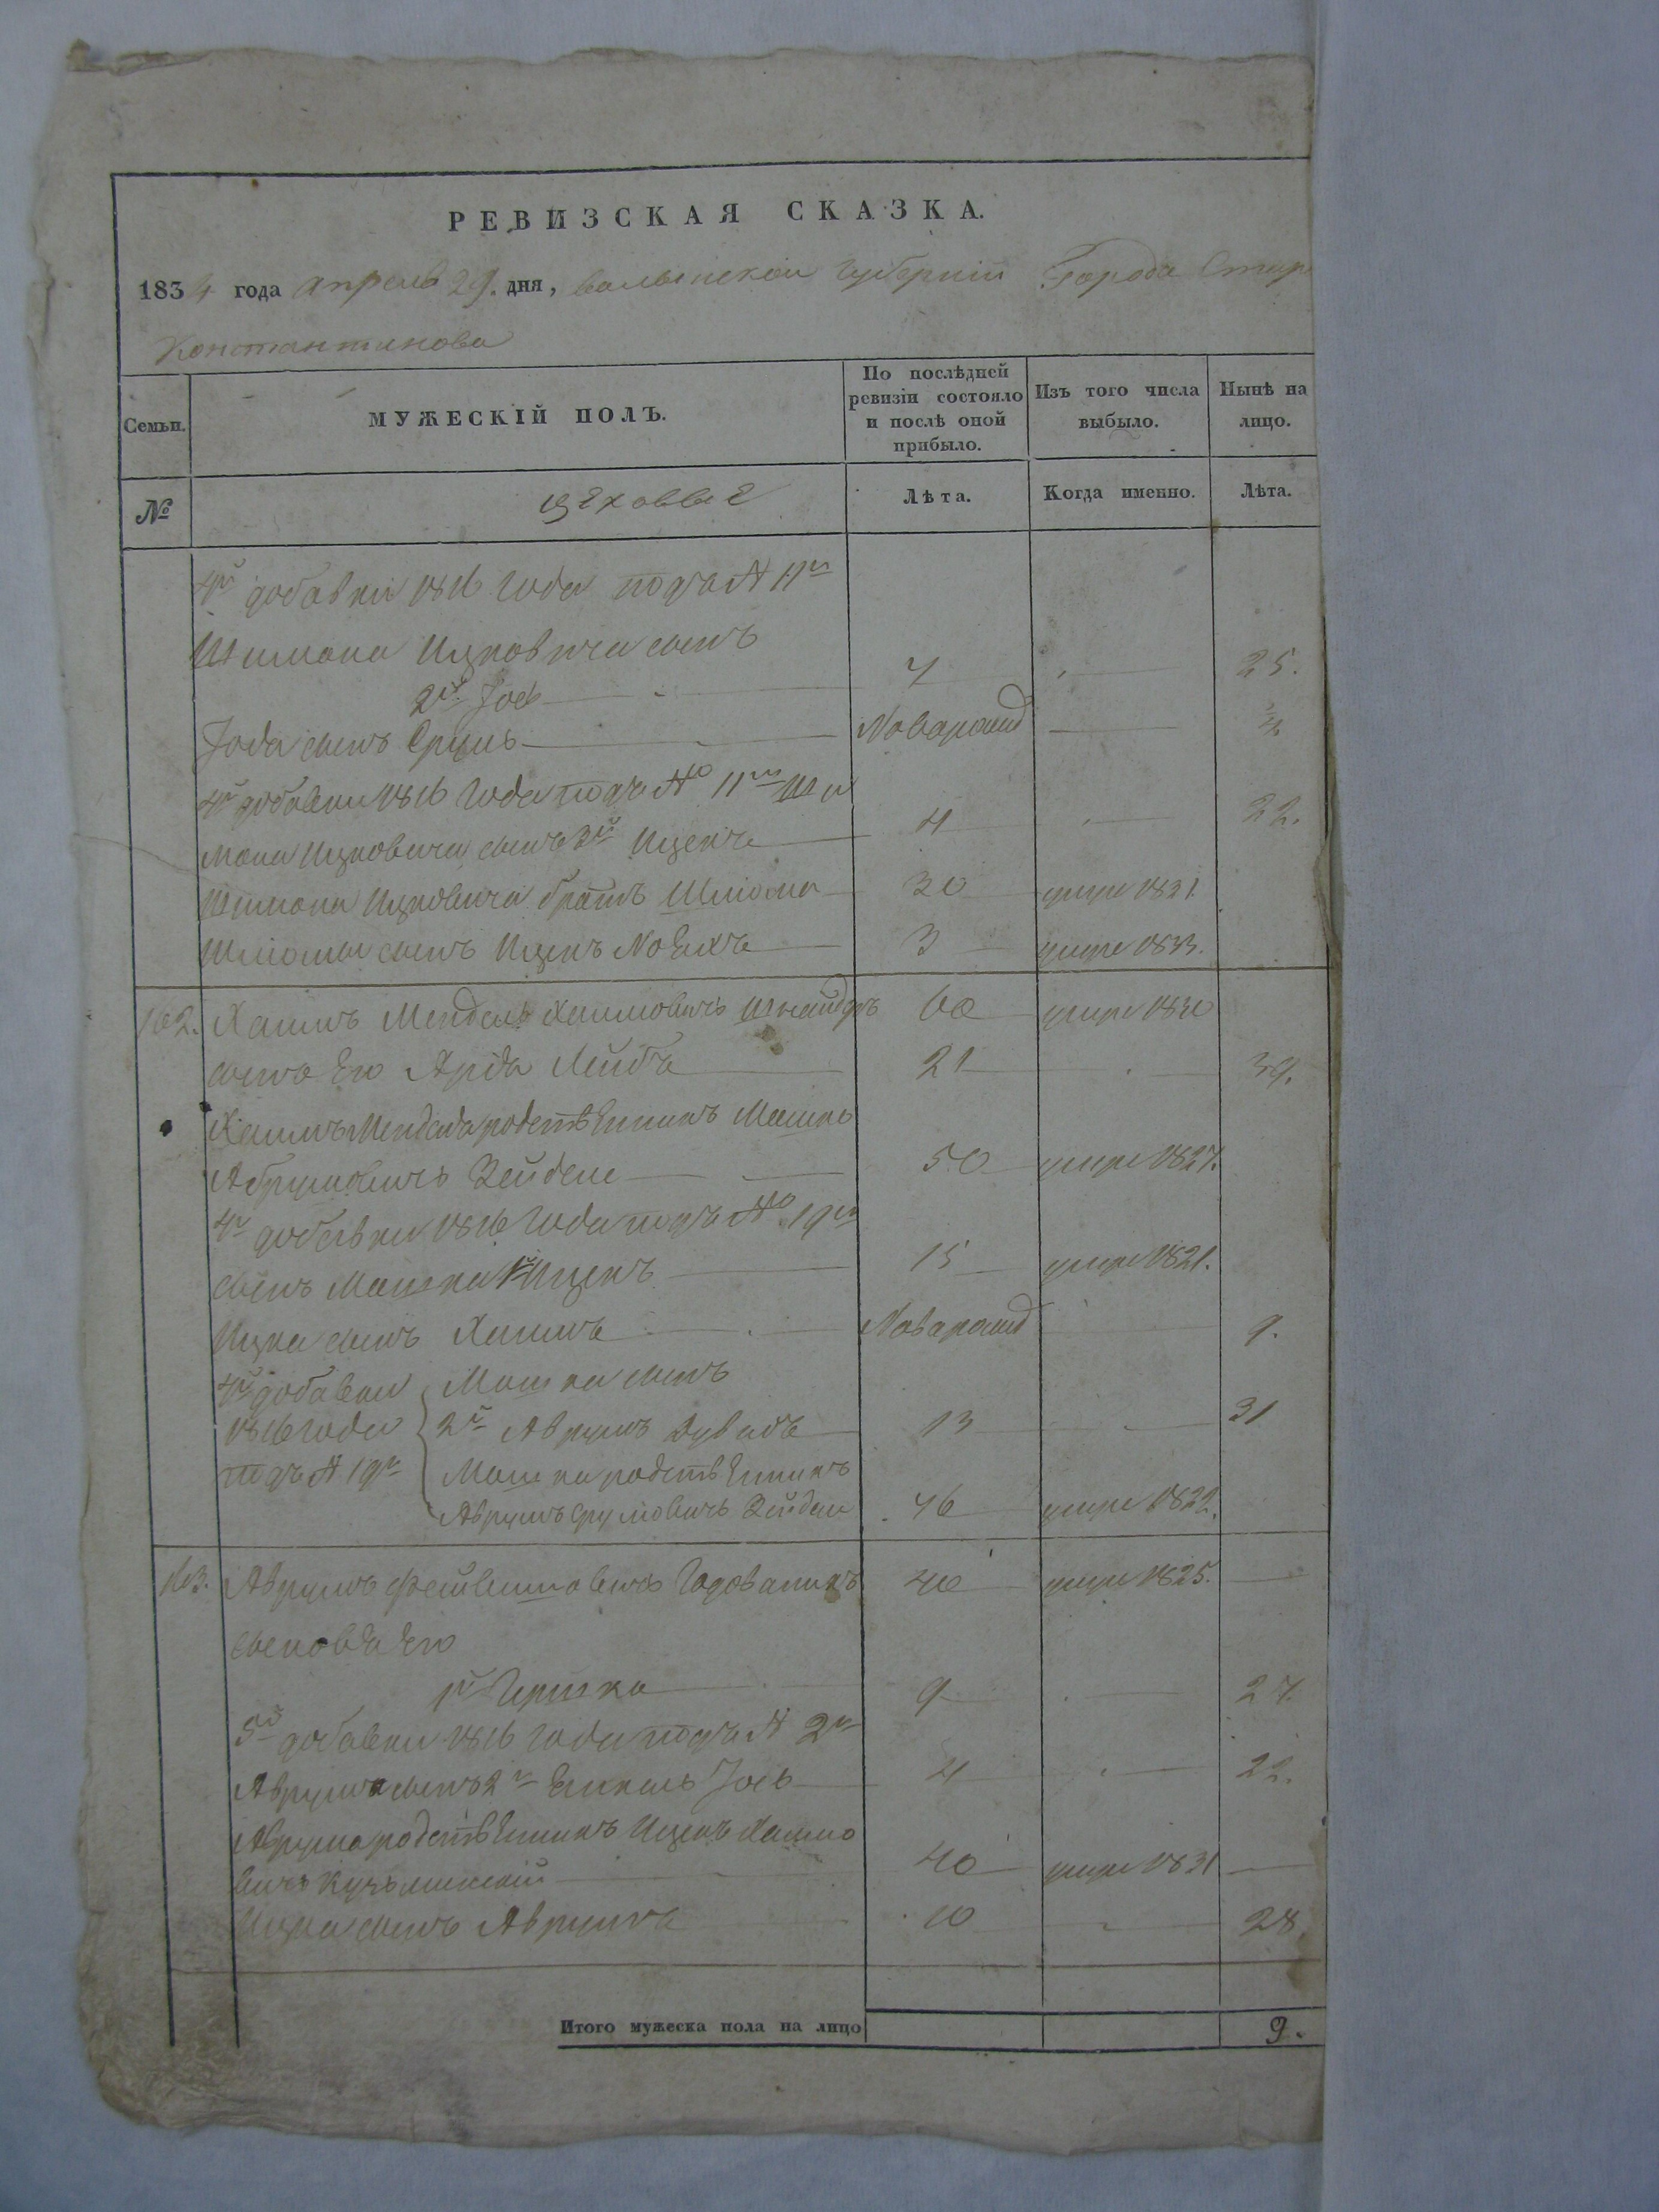 РЕВИЗСКАЯ СКАЗКА.
1834 года апреля 29. дня, волынской губернии Города Стар
Константинова
Семьи.
МУЖЕСКІЙ ПОЛЪ.
По послѣдней ревизіи состояло и послѣ оной прибыло.
Изъ того числа выбыло.
Нынѣ на лицо.
№
цеховые
Лѣта.
Когда именно.
Лѣта.
4й добавки 1816 года подъ № 11м
Шимона Ицковича сынъ
2й Іось 7 25.
Іося сынъ Сруль Новарожд
4й добавки 1816 года подъ № 11м Ши
мона Ицковича сынъ 3й Ицекъ 4 22.
Шимона Ицковича братъ Шліома 30 умре 1831.
Шліомы сынъ ИцекъНоехъ 3 умре 1833.
162. Хаимъ Мендель Хаимовичъ Шнайдеръ 60 умре 1830
сынъ Его Лейба 21 39.
Хаимъ Менделя родственникъ Мошко
Абрумовичъ Зейдене 50 умре 1827.
4й добавки 1816 года подъ № 19м
сынъ Мошка 1й Ицекъ 15 умре 1821.
Ицка сынъ Хаимъ Новарожд 9.
4й добавки 1816 года подъ № 19м
Мошка сынъ
2й Аврумъ Дувидъ 13 31
Мошка родственникъ
Аврумъ Срулiовичъ Зейдене 46 умре 1822.
163. Аврумъ Фейвишовичъ Годованикъ 40 умре 1825.
сыновья Его
1й Гершко 9 27.
5й добавки 1816 года подъ № 2м
Аврума сынъ 2й Енкель Іось 4 22.
Аврума родственникъ Ицекъ Хаимо
вичъ Кузьминскій 40 умре 1831
Ицка сынъ Аврумъ 10 28.
Итого мужеска пола на лицо 9.